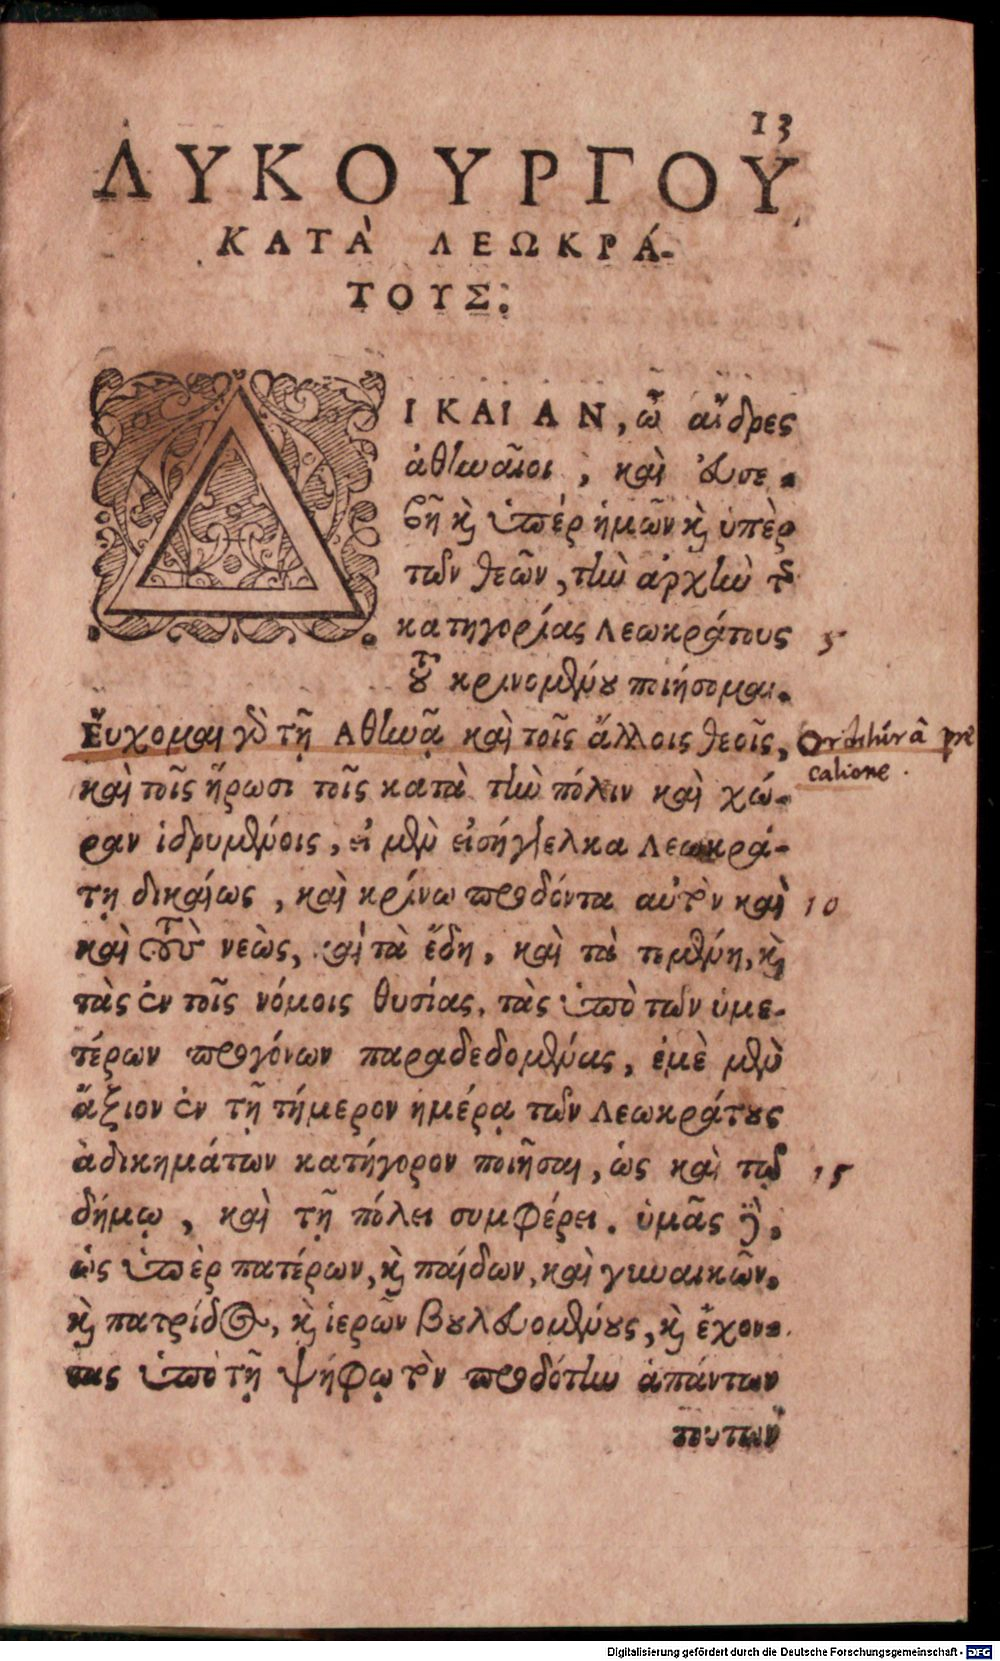 13
ΛΥΚΟΥΡΓΟΥ
ΚΑΤᾺ ΛΕΩΚΡΆ-
ΤΟΥΣ.
ΔΙΚΑΙΑΝ, ὦ ἄνδρες
ἀθηναῖοι, καὶ εὐσε-
βῆ καὶ ὑπὲρ ἡμῶν καὶ ὑπὲρ
τῶν θεῶν, τὴν ἀρχὴν τῆς
κατηγορίας Λεωκράτους 5
τοῦ κρινομένου ποιήσομαι.
Εὔχομαι γὰρ τῇ Ἀθηνᾷ καὶ τοῖς ἄλλοις θεοῖς,
καὶ τοῖς ἥρωσι τοῖς κατὰ τὴν πόλιν καὶ χώ-
ραν ἱδρυμένοις, εἰ μὲν εἰσήγγελκα Λεωκρά-
τη δικαίως, καὶ κρίνω προδόντα αὐτῶν καὶ 10
καὶ τοὺς νεὼς, καὶ τὰ ἕδη, καὶ τὰ τεμένη, καὶ
τὰς ἐν τοῖς νόμοις θυσίας, τὰς ὑπὸ τῶν ὑμε-
τέρων προγόνων παραδεδομένας, ἐμὲ μὲν
ἄξιον ἐν τῇ τήμερον ἡμέρᾳ τῶν Λεωκράτους
ἀδικημάτων κατήγορον ποιῆσαι, ὡς καὶ τῷ 15
δήμῳ, καὶ τῇ πόλει συμφέρει. ὑμᾶς δὲ,
ὡς ὑπὲρ πατέρων, καὶ παίδων, καὶ γυναικῶν,
καὶ πατρίδος, καὶ ἱερῶν βουλευομένους, καὶ ἔχον-
τας ὑπὸ τῇ ψήφῳ τὸν προδότην ἁπάντων
τούτων
Orditur à pre
catione.
Digitalisierung gefördert durch die Deutsche Forschungsgemeinschaft - DFG